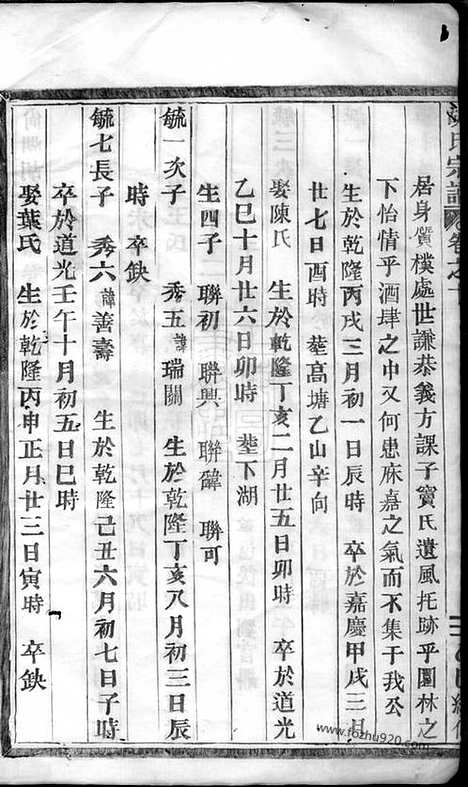 氏宗譜 卷之
居身質樸處世謙恭義方課子竇氏遺風托跡乎園林之
下怡情乎酒肆之中又何患麻嘉之氣而不集于我公
生於乾隆丙戌三月初一日辰時 卒於嘉慶甲戌三月
廿七日酉時 塟高塘乙山辛向
娶陳氏 生於乾隆丁亥二月廿五日卯時 卒於道光
乙巳十月廿六日卯時 塟下湖
生四子 聯初 聯興 聯磾 聯可
毓一次子 秀五諱瑞關 生於乾隆丁亥八月初三日辰
時 卒缺
毓七長子 秀六諱善壽 生於乾隆己丑六月初七日子時
卒於道光壬午十月初五日巳時
娶葉氏 生於乾隆丙申正月廿三日寅時 卒缺
www.fozhu920.com